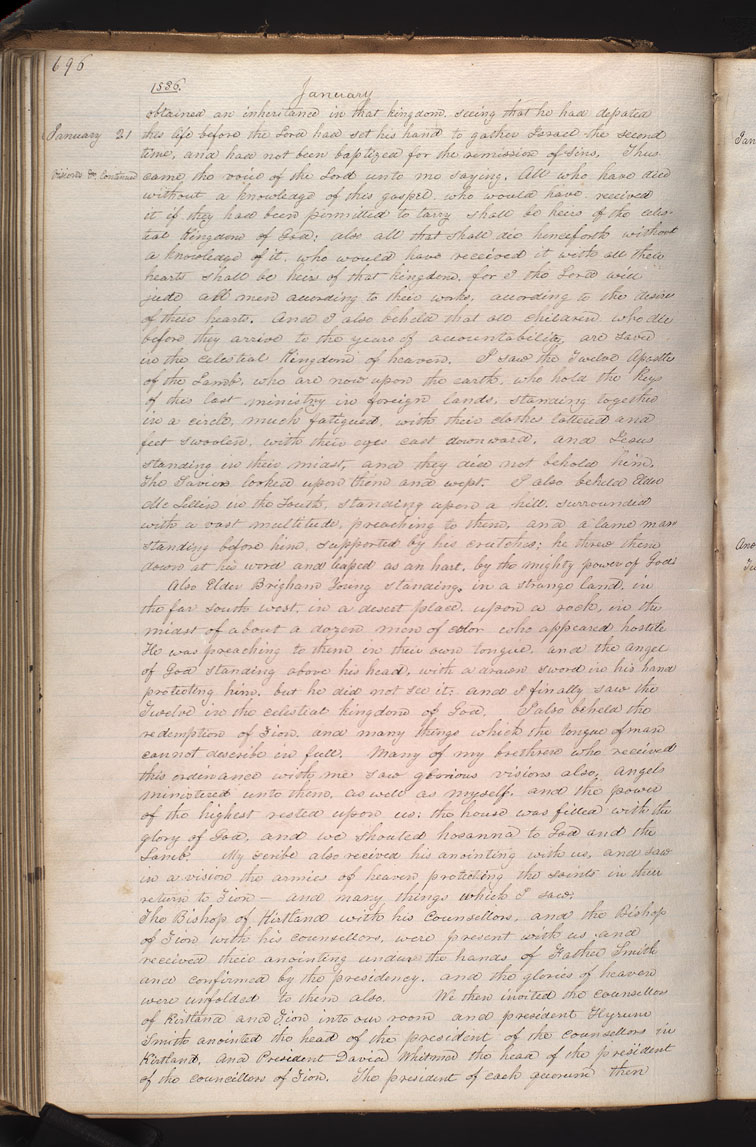 696
1836.
January
January 21
obtained an inheritance in that kingdom, seeing that he had depated
this life before the Lord had set his hand to gather Israel the second
time, and had not been baptized for the remission of sins. Thus
visions &c Continued
came the voice of the Lord unto me saying, All who have died
without a knowledge of this gospel, who would have received
it if they had been permitted to tarry shall be heirs of the celes-
tial kingdom of God; also all that shall die henceforth without
a knowledge of it, who would have received it with all their
hearts shall be heirs of that kingdom, for I the Lord will
jude all men according to their works, according to the desires
of their hearts. And I also beheld that all children who die
before they arrive to the years of accountability, are saved
in the celestial kingdom of heaven. I saw the Twelve Apostles
of the Lamb, who are now upon the earth, who hold the Keys
of this last ministry in foreign lands, standing together
in a circle, much fatigued, with their clothes tattered and
feet swoolen, with their eyes cast downward, and Jesus
standing in their midst, and they did not behold him,
The Savior looked upon them and wept. I also beheld Elder
Mc Lellin in the South, standing upon a hill, surrounded
with a vast multitude, preaching to them, and a lame man
standing before him, supported by his crutches; he threw them
down at his word and leaped as an hart, by the mighty power of God.
Also Elder Brigham Young standing, in a strange land, in
the far south west, in a desert place, upon a rock, in the
midst of about a dozen men of color who appeared hostile
He was preaching to them in their own tongue, and the angel
of God standing above his head, with a drawn sword in his hand
protecting him, but he did not see it; and I finally saw the
Twelve in the celestial kingdom of God. I also beheld the
redemption of Zion, and many things which the tongue of man
cannot describe in full. Many of my brethren who received
this ordinance with me saw glorious visions also, angels
ministered unto them, as well as myself, and the power
of the highest rested upon us; the house was filled with the
glory of God, and we shouted hosanna to God and the
Lamb. My scribe also received his anointing with us, and saw
in a vision the armies of heaven protecting the saints in their
return to Zion — and many things which I saw.
The Bishop of Kirtland with his Counsellors, and the Bishop
of Zion with his counsellors, were present with us, and
received their anointing under the hands of Father Smith
and confirmed by the presidency, and the glories of heaven
were unfolded to them also. We then invited the counsellors
of Kirtland and Zion into our room and president Hyrum
Smith anointed the head of the president of the counsellors in
Kirtland, and President David Whitmer the head of the president
of the councillors of Zion. The president of each quorum then
Jan